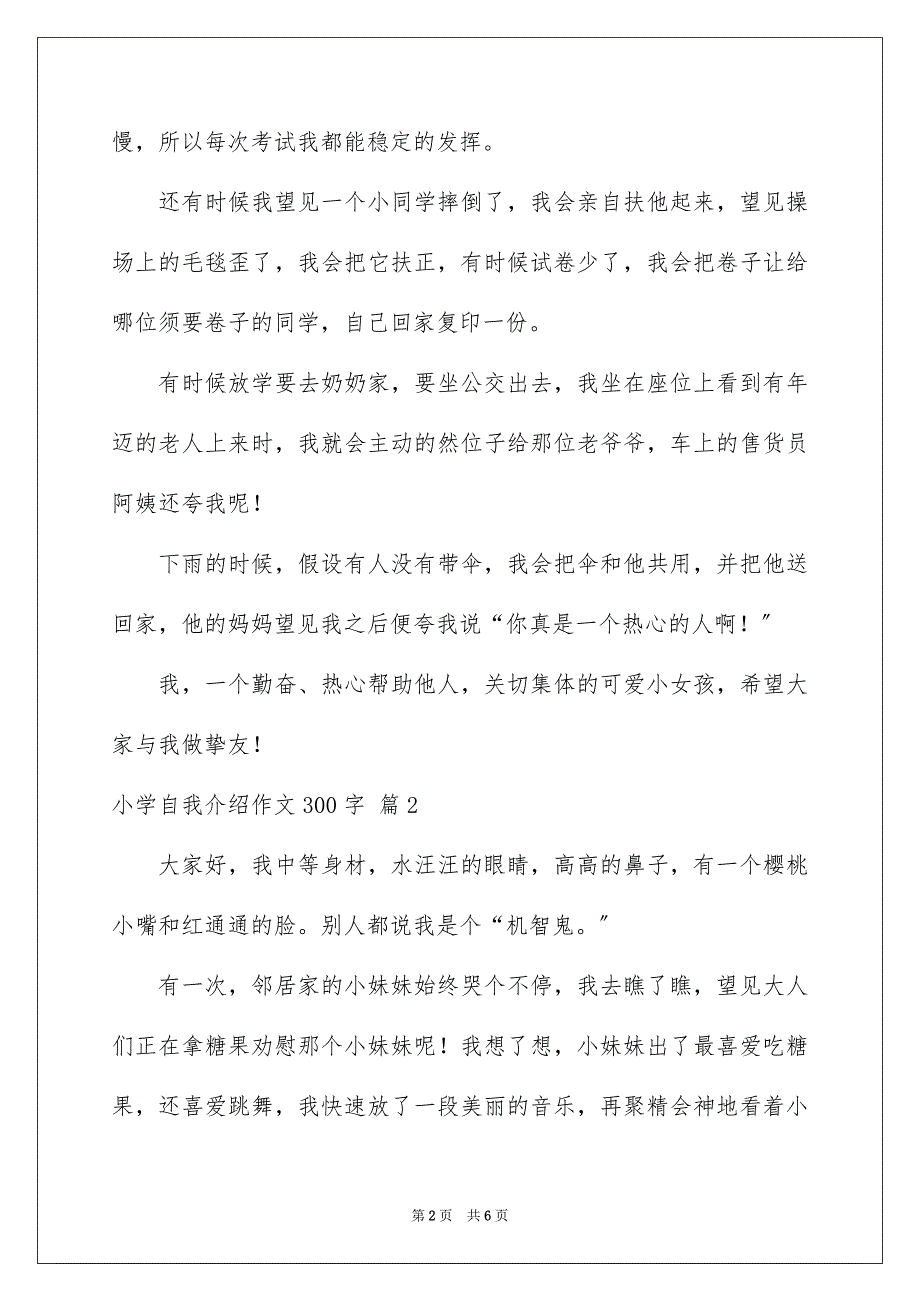 慢，所以每次考试我都能稳定的发挥。
还有时候我望见一个小同学摔倒了，我会亲自扶他起来，望见操
场上的毛毯歪了，我会把它扶正，有时候试卷少了，我会把卷子让给
哪位须要卷子的同学，自己回家复印一份。
有时候放学要去奶奶家，要坐公交出去，我坐在座位上看到有年
迈的老人上来时，我就会主动的然位子给那位老爷爷，车上的售货员
阿姨还夸我呢！
下雨的时候，假设有人没有带伞，我会把伞和他共用，并把他送
回家，他的妈妈望见我之后便夸我说“你真是一个热心的人啊！〞
我，一个勤奋、热心帮助他人，关切集体的可爱小女孩，希望大
家与我做挚友！
小学自我介绍作文 300 字 篇 2
大家好，我中等身材，水汪汪的眼睛，高高的鼻子，有一个樱桃
小嘴和红通通的脸。别人都说我是个“机智鬼。〞
有一次，邻居家的小妹妹始终哭个不停，我去瞧了瞧，望见大人
们正在拿糖果劝慰那个小妹妹呢！我想了想，小妹妹出了最喜爱吃糖
果，还喜爱跳舞，我快速放了一段美丽的音乐，再聚精会神地看着小
第 2 页 共 6 页